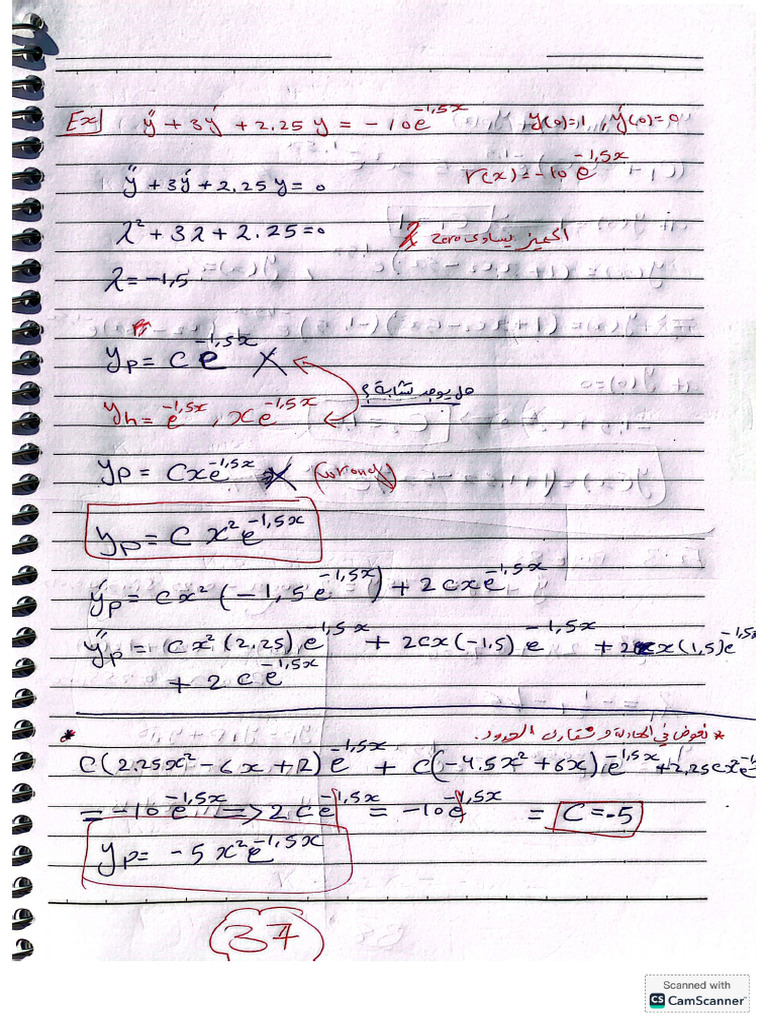 Ex ÿ + 3ý + 2.25 y = -10e^-1,5x y(0)=1, ý(0)=0
ÿ + 3ý + 2.25 y = 0 r(x) = -10e^-1,5x
λ² + 3λ + 2.25 = 0 المميز يساوى zero
λ = -1,5
yp = c e^-1,5x X
هل يوجد تشابة؟
yh = e^-1,5x, xe^-1,5x
yp = Cxe^-1,5x X (wrong)
yp = C x² e^-1,5x
ýp = cx² (-1,5e^-1,5x) + 2cxe^-1,5x
ÿp = cx² (2.25) e^-1,5x + 2cx(-1,5) e^-1,5x + 2cx(1,5)e^-1,5x
+ 2 c e^-1,5x
* نعوض في المعادلة و نقارن الحدود.
C(2.25x² - 6x + 2) e^-1,5x + C(-4.5x² + 6x) e^-1,5x + 2,25cx²e^-1
= -10e^-1,5x => 2 C e^-1,5x = -10e^-1,5x = C = -5
yp = -5x²e^-1,5x
37
Scanned with
CS CamScanner